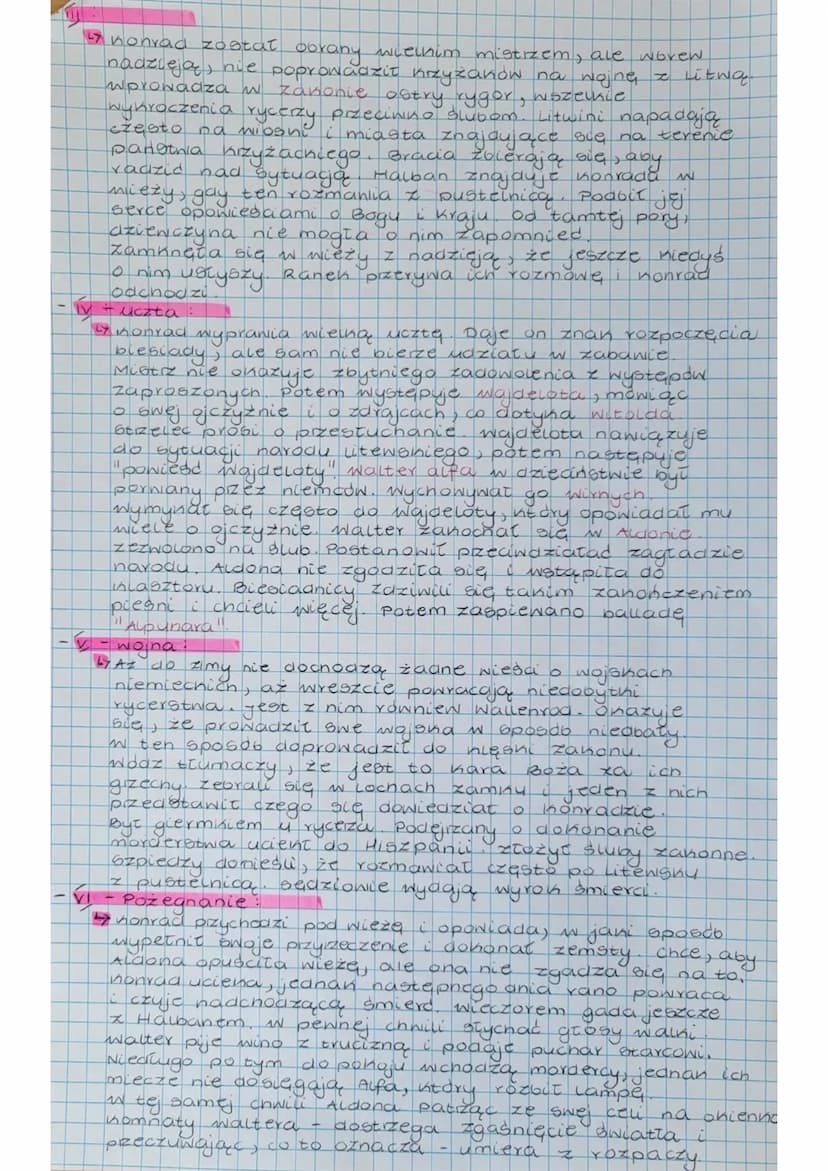 III :
↳ Konrad został obrany wielkim mistrzem, ale wbrew
nadzieją, nie poprowadził krzyżaków na wojnę z Litwą.
Wprowadza w zakonie ostry rygor, wszelkie
wykroczenia rycerzy przeciwko ślubom. Litwini napadają
często na wioski i miasta znajdujące się na terenie
państwa krzyżackiego. Bracia zbierają się, aby
radzić nad sytuacją. Halban znajduje Konrada w
wieży, gdy ten rozmawia z pustelnicą. Podbił jej
serce opowieściami o Bogu i kraju. Od tamtej pory,
dziewczyna nie mogła o nim zapomnieć.
Zamknęła się w wieży z nadzieją, że jeszcze kiedyś
o nim usłyszy. Ranek przerywa ich rozmowę i Konrad
odchodzi.
- IV - uczta :
↳ Konrad wyprawia wielką ucztę. Daje on znak rozpoczęcia
biesiady, ale sam nie bierze udziału w zabawie.
Mistrz nie okazuje zbytniego zadowolenia z występów
zaproszonych. Potem występuje wajdelota, mówiąc
o swej ojczyźnie i o zdrajcach, co dotyka Witolda
strzelec prosi o przesłuchanie. Wajdelota nawiązuje
do sytuacji narodu litewskiego, potem następuje
"powieść wajdeloty". Walter alfa w dzieciństwie był
porwany przez niemców. Wychowywał go Winrych.
Wymykał się często do Wajdeloty, który opowiadał mu
wiele o ojczyźnie. Walter zakochał się w Aldonie.
Zezwolono na ślub. Postanowił przeciwdziałać zagładzie
narodu. Aldona nie zgodziła się i wstąpiła do
klasztoru. Biesiadnicy zdziwili się takim zakończeniem
pieśni i chcieli więcej. Potem zaśpiewano balladę
"Alpuhara".
- V - wojna :
↳ Aż do zimy nie dochodzą żadne wieści o wojskach
niemieckich, aż wreszcie powracają niedobytki
rycerstwa. Jest z nim również Wallenrod. Okazuje
się, że prowadził swe wojska w sposób niedbały.
W ten sposób doprowadził do klęski zakonu.
Wódz tłumaczy, że jest to kara Boża za ich
grzechy. Zebrali się w lochach zamku i jeden z nich
przedstawił czego się dowiedział o Konradzie.
Był giermkiem u rycerza. Podejrzany o dokonanie
morderstwa uciekł do Hiszpanii. Złożył śluby zakonne.
Szpiedzy donieśli, że rozmawiał często po litewsku
z pustelnicą. Sędziowie wydają wyrok śmierci.
- VI - Pożegnanie :
↳ Konrad przychodzi pod wieżę i opowiada, w jaki sposób
wypełnił swoje przyrzeczenie i dokonał zemsty. Chce, aby
Aldona opuściła wieżę, ale ona nie zgadza się na to.
Konrad ucieka, jednak następnego dnia rano powraca
i czuje nadchodzącą śmierć. Wieczorem gada jeszcze
z Halbanem. W pewnej chwili słychać głosy walki
Walter pije wino z trucizną i podaje puchar starcowi.
Niedługo po tym do pokoju wchodzą mordercy, jednak ich
miecze nie dosięgają Alfa, który rozbił lampę.
W tej samej chwili Aldona patrząc ze swej celi na okienko
komnaty Waltera - dostrzega zgaśnięcie światła i
przeczuwając, co to oznacza - umiera z rozpaczy.